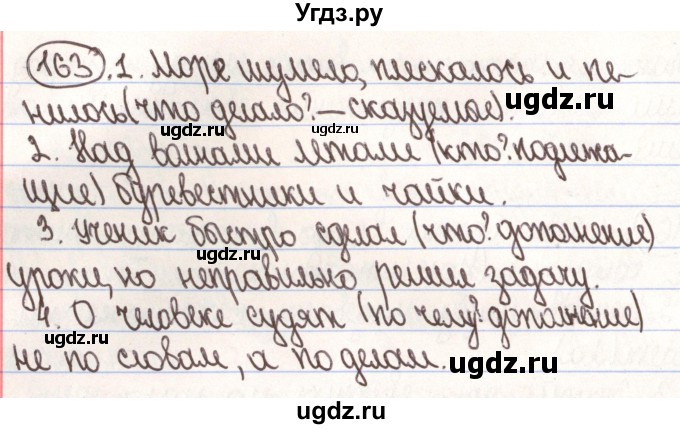 Угдз.ру
163. 1. Море шумело, плескалось и пе-
нилось (что делало? — сказуемое).
ugdz.ru ugdz.ru ugdz.ru
2. Над волнами летали (кто? подлежа-
щие) буревестники и чайки.
ugdz.ru ugdz.ru
3. Ученик быстро сделал (что? дополнение)
ugdz.ru ugdz.ru
уроки, но неправильно решил задачу.
4. О человеке судят (по чему? дополнение)
ugdz.ru ugdz.ru
не по словам, а по делам.
ugdz.ru
ugdz.ru